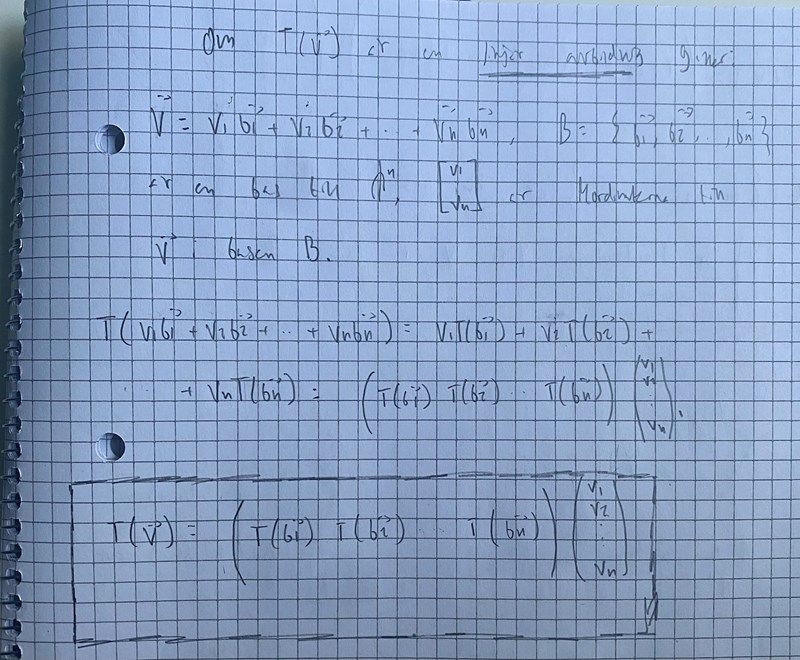 Om T(v⃗) är en linjär avbildning gäller:
v⃗ = v₁b⃗₁ + v₂b⃗₂ + ... + vₙb⃗ₙ, B = {b⃗₁, b⃗₂, ..., b⃗ₙ}
är en bas till ℝⁿ, [v₁ ... vₙ] är koordinaterna till
v⃗ i basen B.
T(v₁b⃗₁ + v₂b⃗₂ + ... + vₙb⃗ₙ) = v₁T(b⃗₁) + v₂T(b⃗₂) +
... + vₙT(b⃗ₙ) = (T(b⃗₁) T(b⃗₂) ... T(b⃗ₙ)) (v₁ v₂ ... vₙ).
T(v⃗) = (T(b⃗₁) T(b⃗₂) ... T(b⃗ₙ)) (v₁ v₂ ... vₙ)